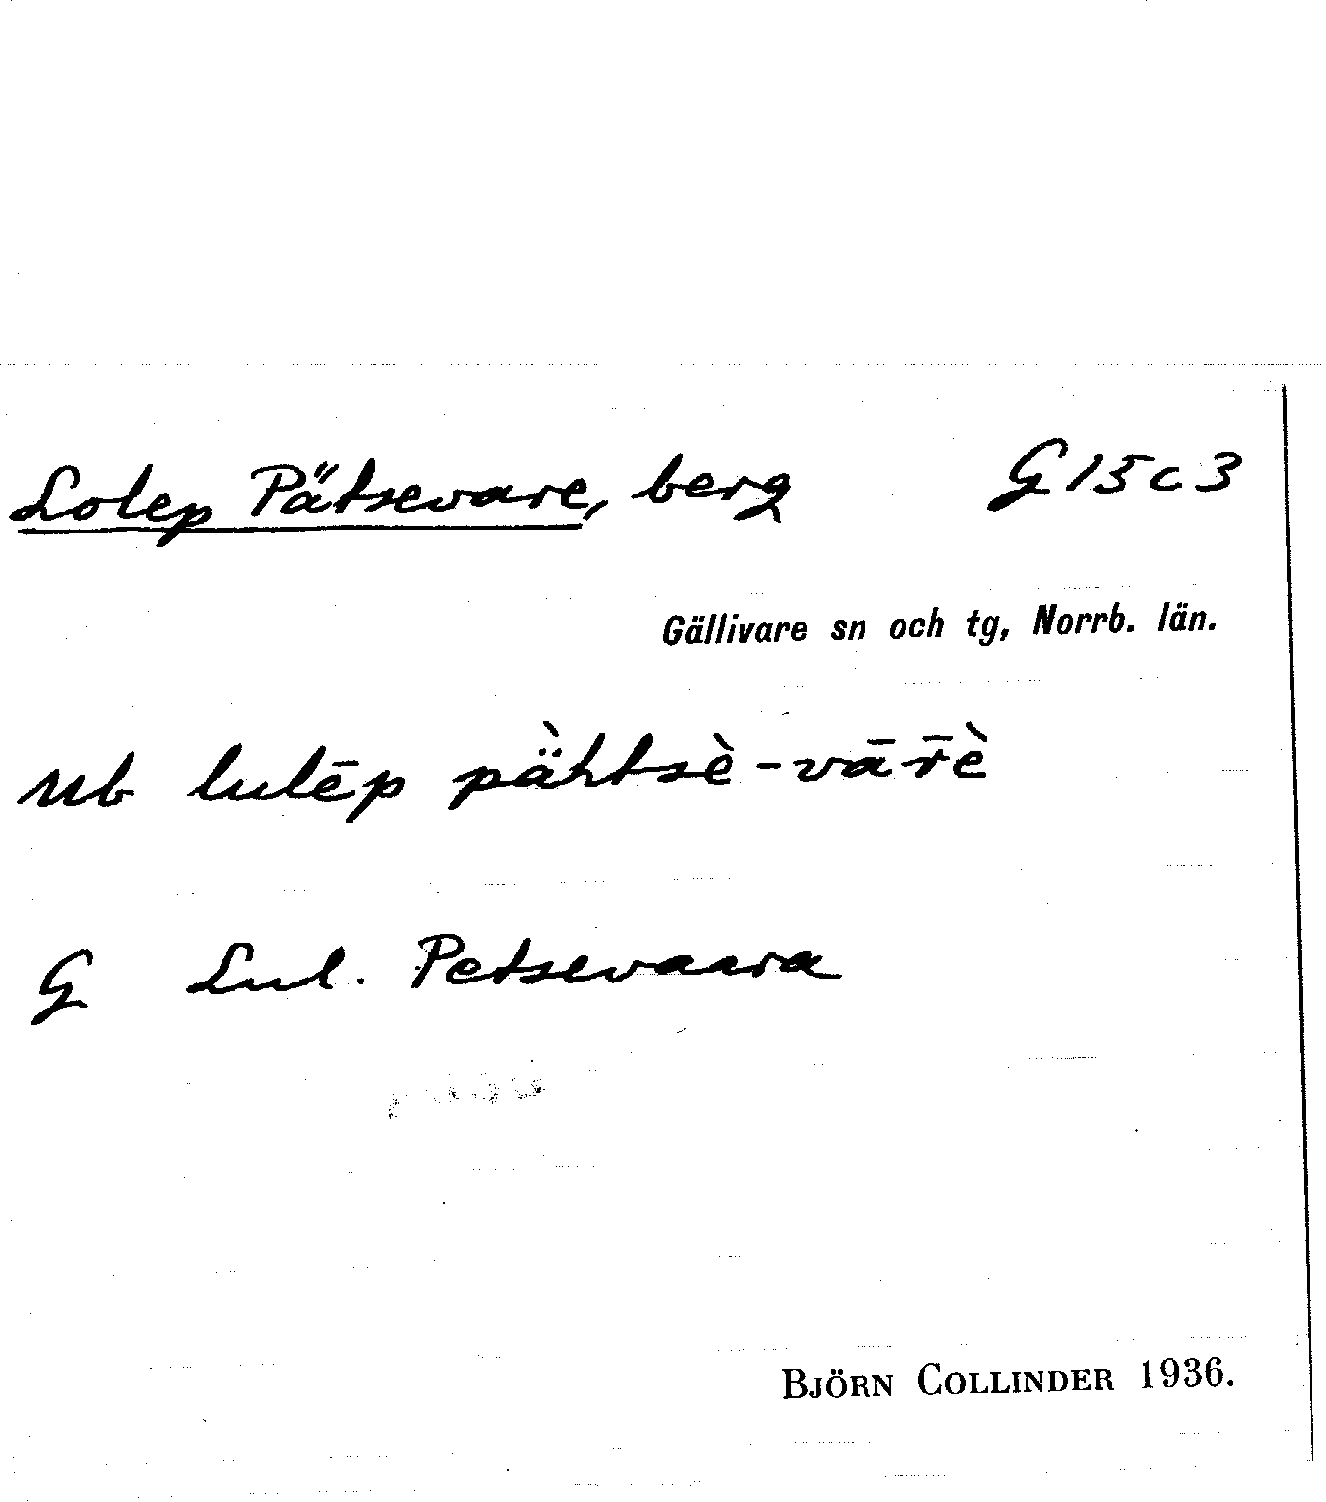 Lolep Pätsevare, berg G 15 c 3
Gällivare sn och tg, Norrb. län.
ub lulēp pä̀htsè-vār̄è
G Lul. Petsevaara
BJÖRN COLLINDER 1936.